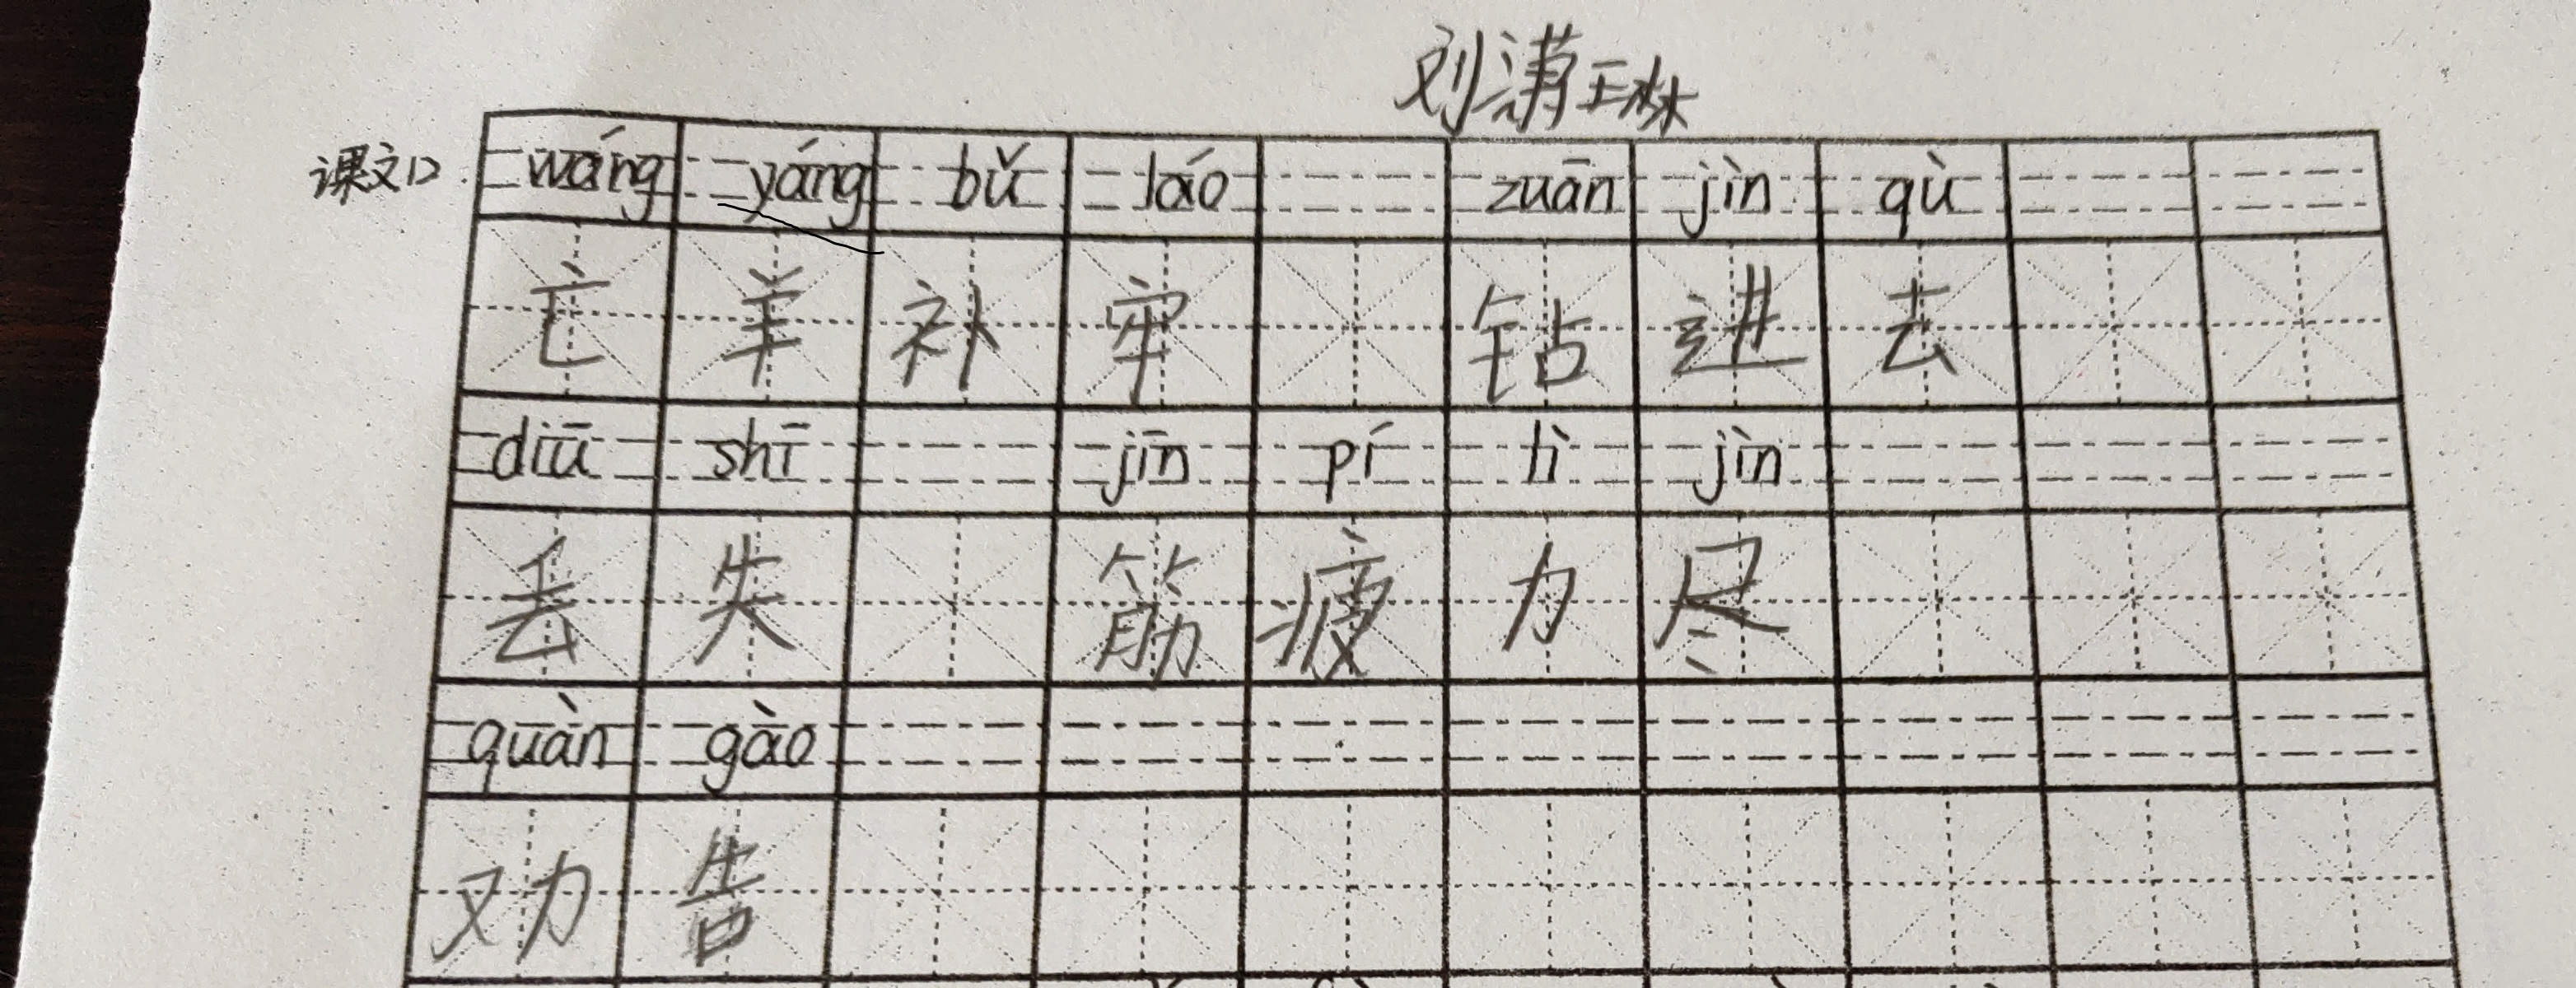 刘潇琳
课文12 wáng yáng bǔ láo zuān jìn qù
亡羊补牢 钻进去
diū shī jīn pí lì jìn
丢失 筋疲力尽
quàn gào
劝告